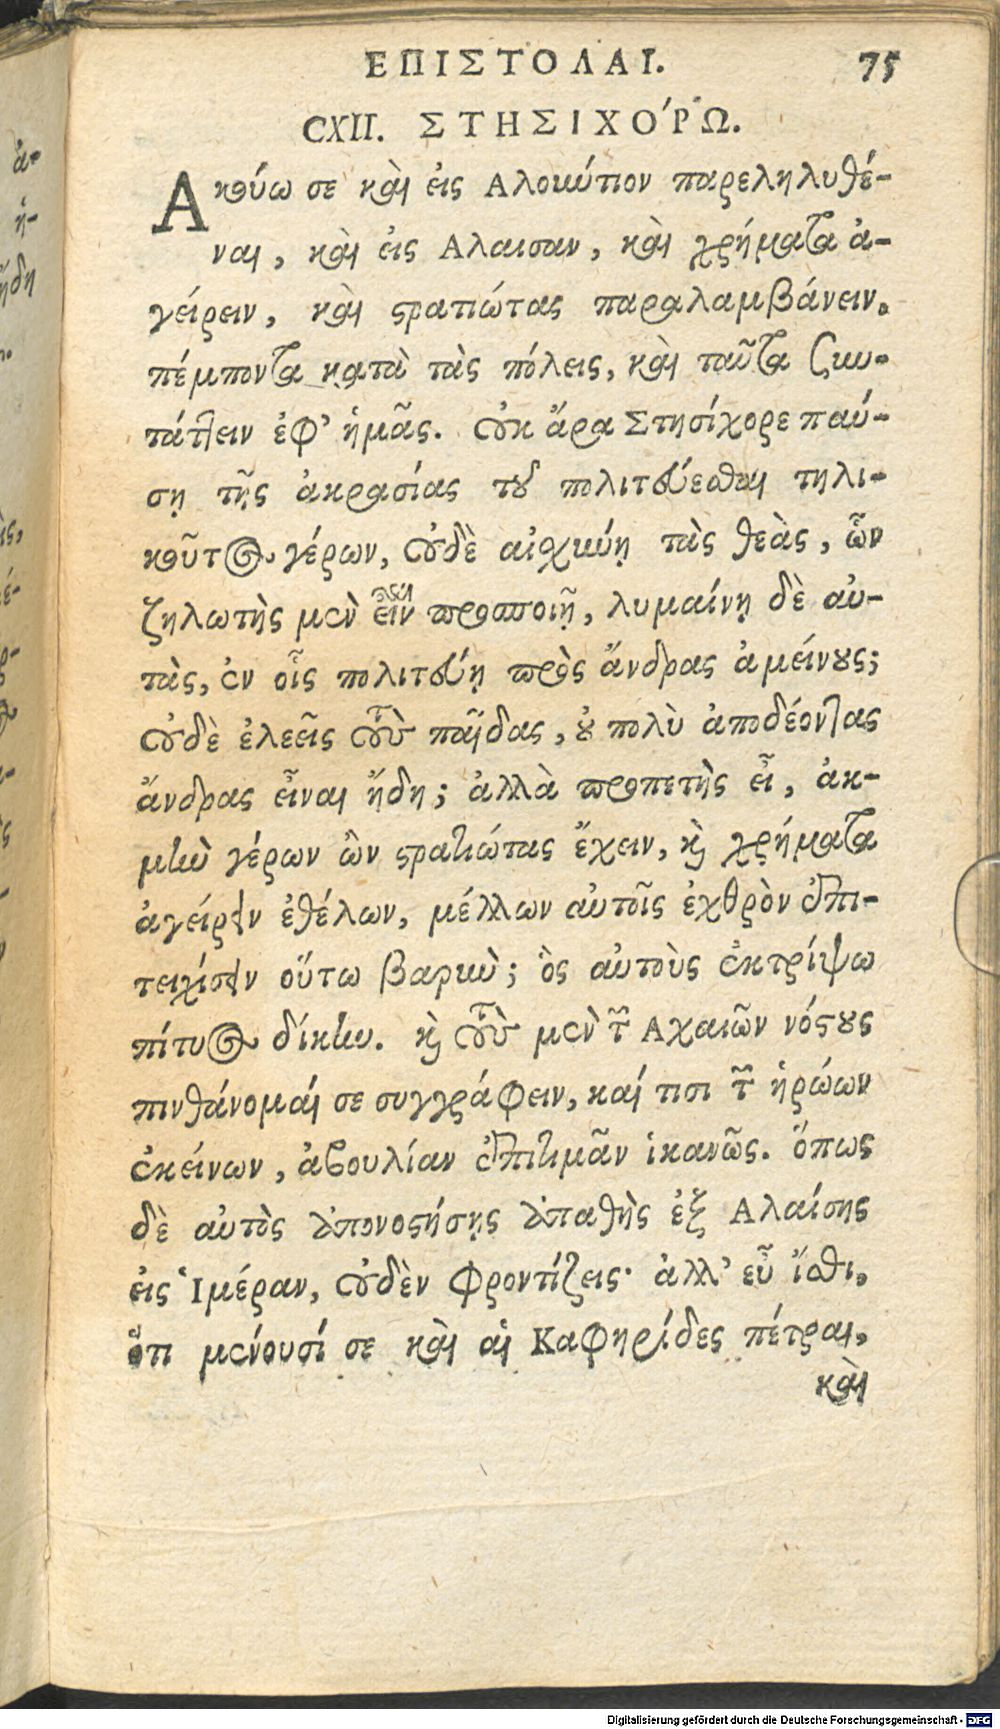 ΕΠΙΣΤΟΛΑΙ. 75
CXII. ΣΤΗΣΙΧΟ΄ΡΩ.
Ακούω σε καὶ εἰς Αλοκύπιον παρεληλυθέ-
ναι, καὶ εἰς Αλαισαν, καὶ χρήματα ἀ-
γείρειν, καὶ στρατιώτας παραλαμβάνειν.
πέμποντα κατὰ τὰς πόλεις, καὶ ταῦτα συν-
τάττειν ἐφ' ἡμᾶς. Οὐκ ἄρα Στησίχορε παύ-
σῃ τῆς ἀκρασίας τοῦ πολιτεύεσθαι τηλι-
κοῦτος γέρων, οὐδὲ αἰσχύνῃ τὰς θεὰς, ὧν
ζηλωτὴς μὲν εἶν προσποιῇ, λυμαίνῃ δὲ αὐ-
τὰς, ἐν οἷς πολιτεύῃ πρὸς ἄνδρας ἀμείνους;
οὐδὲ ἐλεεῖς τοὺς παῖδας, οὐ πολὺ ἀποδέοντας
ἄνδρας εἶναι ἤδη; ἀλλὰ προπετὴς εἶ, ἀκ-
μὴν γέρων ὢν στρατιώτας ἔχειν, καὶ χρήματα
ἀγείρειν ἐθέλων, μέλλων αὐτοῖς ἐχθρὸν ἐπι-
τειχίσειν οὕτω βαρὺν; ὃς αὐτοὺς ἐκτρίψω
πίτυος δίκην. καὶ τοὺς μὲν τῶν Αχαιῶν νόστους
πινθάνομαί σε συγγράφειν, καί τισι τῶν ἡρώων
ἐκείνων, ἀβουλίαν ἐπιτιμᾶν ἱκανῶς. ὅπως
δὲ αὐτὸς ἀπονοστήσῃς ἀπαθὴς ἐξ Αλαίσης
εἰς Ἱμέραν, οὐδὲν φροντίζεις· ἀλλ' εὖ ἴσθι.
ὅτι μένουσί σε καὶ αἱ Καφηρίδες πέτραι,
καὶ
Digitalisierung gefördert durch die Deutsche Forschungsgemeinschaft - DFG